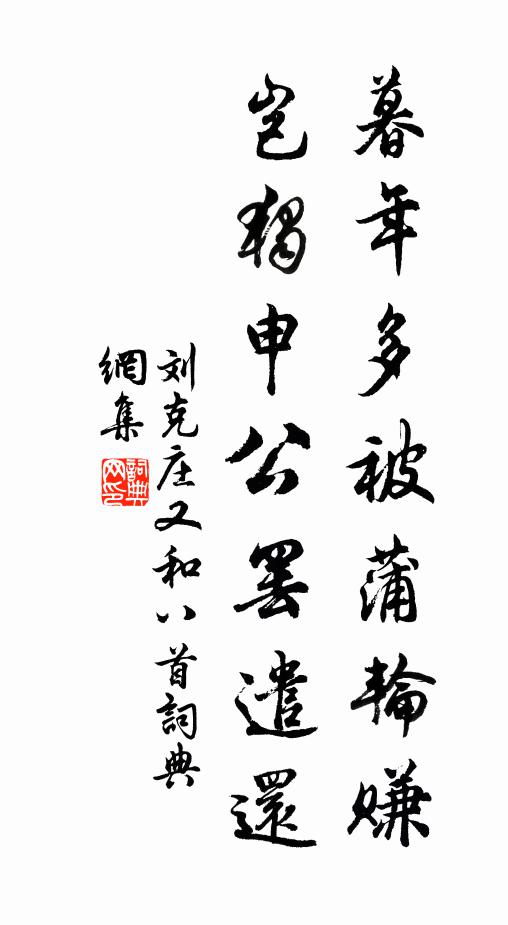 暮年多被蒲輪賺
豈獨申公罢遣還
刘克庄又和八首詞典
網集
詞典
网印